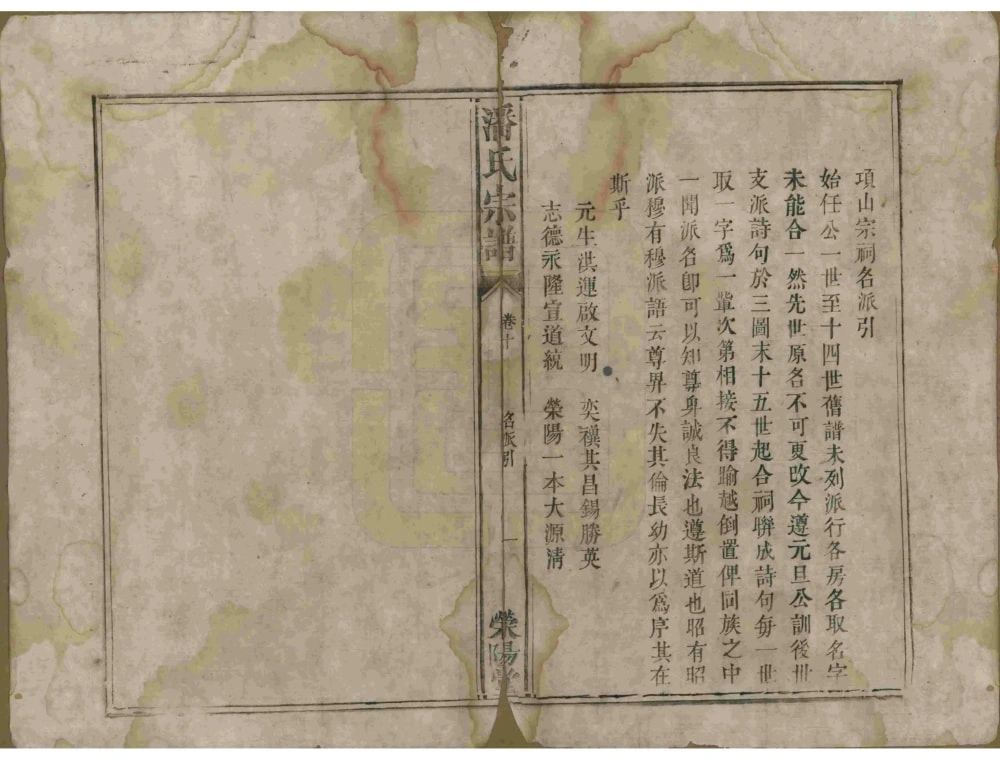 項山宗祠名派引
始任公一世至十四世舊譜未列派行各房各取名字
未能合一然先世原名不可更改今遵元旦公訓後世
支派詩句於三圖末十五世起合祠聯成詩句每一世
取一字為一輩次第相接不得踰越倒置俾同族之中
一聞派名卽可以知尊卑誠良法也遵斯道也昭有昭
派穆有穆派語云尊界不失其倫長幼亦以為序其在
斯乎
元生淇運啟文明　奕禩其昌錫勝英
志德永隆宣道統　滎陽一本大源清
潘氏宗譜
卷十
名派引
一
滎陽堂